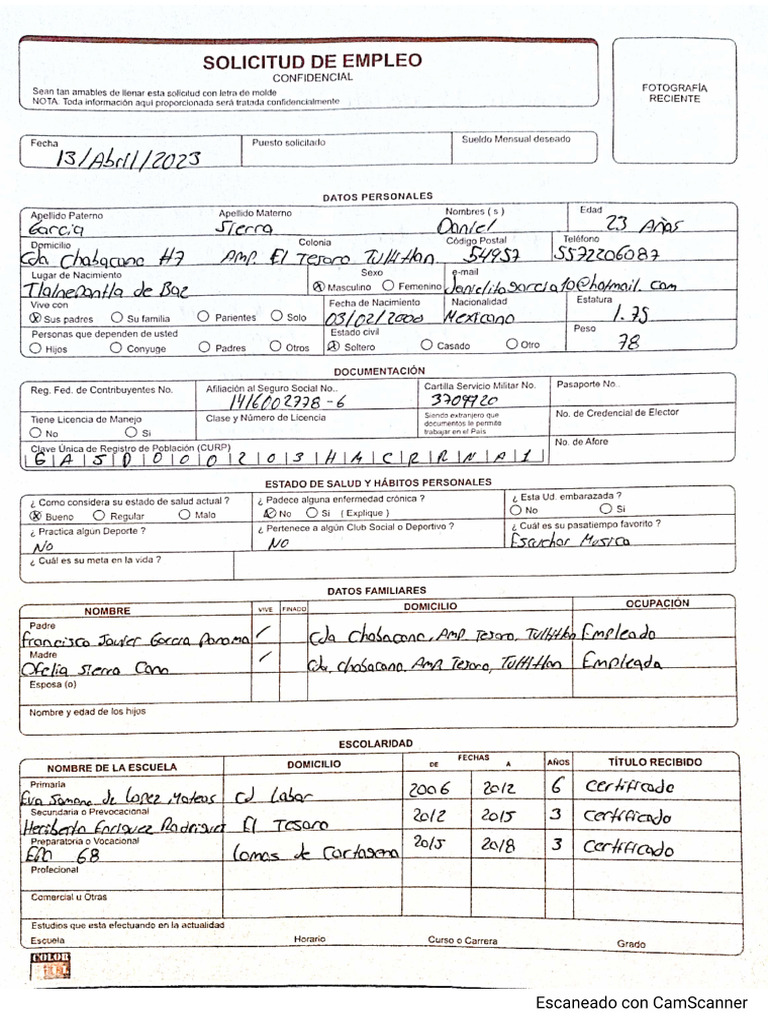 SOLICITUD DE EMPLEO
CONFIDENCIAL
Sean tan amables de llenar esta solicitud con letra de molde
NOTA. Toda información aqui proporcionada será tratada confidencialmente
FOTOGRAFÍA
RECIENTE
Fecha Puesto solicitado Sueldo Mensual deseado
13/Abril/2023
DATOS PERSONALES
Apellido Paterno Apellido Materno Nombres ( s ) Edad
Garcia Sierra Daniel 23 Años
Domicilio Colonia Código Postal Teléfono
Cda Chabacano #7 Amp. El Tesoro Tultitlan 54957 5572206087
Lugar de Nacimiento Sexo e-mail Estatura
Tlalnepantla de Baz Masculino Femenino danielitogarcia10@hotmail.com 1.75
Vive con Fecha de Nacimiento Nacionalidad
Sus padres Su familia Parientes Solo 03/02/2000 Mexicano
Personas que dependen de usted Estado civil Peso
Hijos Conyuge Padres Otros Soltero Casado Otro 78
DOCUMENTACIÓN
Reg. Fed. de Contribuyentes No. Afiliación al Seguro Social No.. Cartilla Servicio Militar No. Pasaporte No..
1416002778-6
Tiene Licencia de Manejo Clase y Número de Licencia Siendo extranjero que documentes le permite trabajar en el País No. de Credencial de Elector
No Si
Clave Única de Registro de Población (CURP) No. de Afore
G A S D 0 0 0 2 0 3 H M C R R N A 1
ESTADO DE SALUD Y HÁBITOS PERSONALES
¿ Como considera su estado de salud actual ? ¿ Padece alguna enfermedad crónica ? ¿ Esta Ud. embarazada ?
Bueno Regular Malo No Si ( Explique ) No Si
¿ Practica algún Deporte ? ¿ Pertenece a algún Club Social o Deportivo ? ¿ Cuál es su pasatiempo favorito ?
No No Escuchar Musica
¿ Cuál es su meta en la vida ?
DATOS FAMILIARES
NOMBRE VIVE FINADO DOMICILIO OCUPACIÓN
Padre
Francisco Javier Garcia Cda Chabacano, Amp. Tesoro, Tultitlan Empleado
Madre
Ofelia Sierra Cano Cda. Chabacano, Amp. Tesoro, Tultitlan Empleada
Esposa (o)
Nombre y edad de los hijos
ESCOLARIDAD
NOMBRE DE LA ESCUELA DOMICILIO FECHAS DE A AÑOS TÍTULO RECIBIDO
Primaria
Eva Samano de Lopez Mateos Cd Labor 2006 2012 6 Certificado
Secundaria o Prevocacional
Heriberto Enriquez Rodriguez El Tesoro 2012 2015 3 Certificado
Preparatoria o Vocacional
68 Lomas de Cartagena 2015 2018 3 Certificado
Profecional
Comercial u Otras
Estudios que esta efectuando en la actualidad
Escuela Horario Curso o Carrera Grado
COLOR
Escaneado con CamScanner